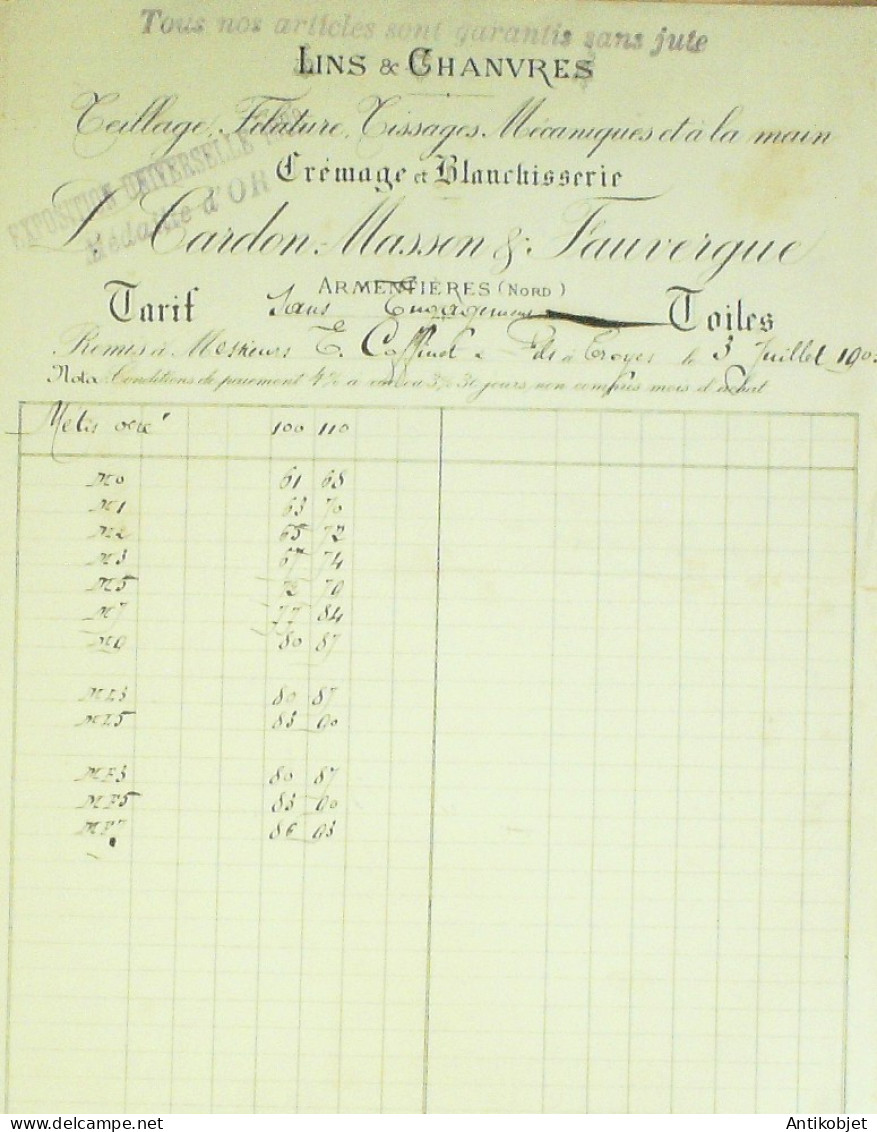 Tous nos articles sont garantis sans jute
LINS & CHANVRES
Teillage, Filature, Tissages Mécaniques et à la main
Crémage et Blanchisserie
EXPOSITION UNIVERSELLE
Médaille d'OR
Cardon-Masson & Fauvergue
ARMENTIÈRES (NORD)
Tarif Sans Engagement Toiles
Remis à Messieurs E. Coffinet & Fils à Troyes le 3 Juillet 190
Nota: Conditions de paiement 4% à 3% 30 jours non compris mois d'achat
Metis 100 110
M0 61 68
M1 63 70
M2 65 72
M3 67 74
M5 72 79
M7 77 84
M9 80 87
ML3 80 87
ML5 83 90
MF3 80 87
MF5 83 90
MF7 86 93
Antikobjet
www.delcampe.net